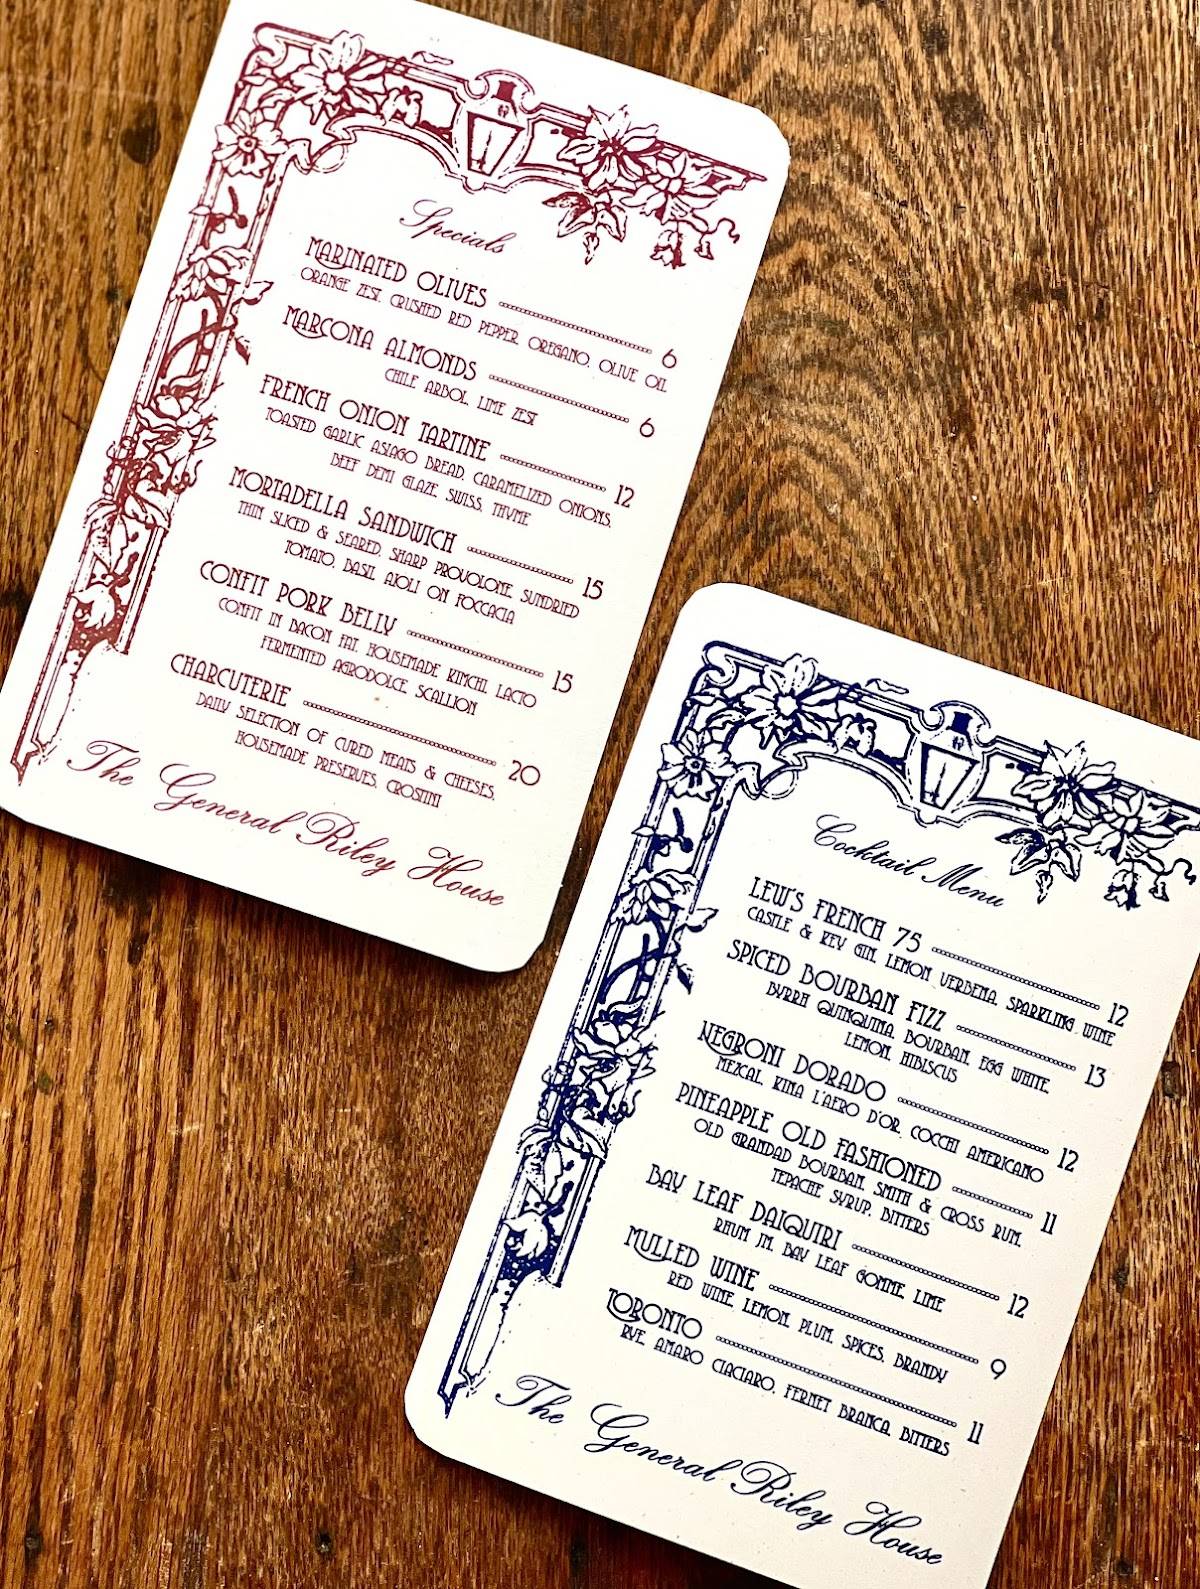 Specials
MARINATED OLIVES 6
ORANGE ZEST, CRUSHED RED PEPPER, OREGANO, OLIVE OIL
MARCONA ALMONDS 6
CHILE ARBOL, LIME ZEST
FRENCH ONION TARTINE 12
TOASTED GARLIC ASIAGO BREAD, CARAMELIZED ONIONS,
BEEF DEMI GLAZE, SWISS, THYME
MORTADELLA SANDWICH 15
THIN SLICED & SEARED, SHARP PROVOLONE, SUNDRIED
TOMATO, BASIL AIOLI ON FOCCACIA
CONFIT PORK BELLY 15
CONFIT IN BACON FAT, HOUSEMADE KIMCHI, LACTO
FERMENTED AGRODOLCE, SCALLION
CHARCUTERIE 20
DAILY SELECTION OF CURED MEATS & CHEESES,
HOUSEMADE PRESERVES, CROSTINI
The General Riley House
Cocktail Menu
LEW'S FRENCH 75 12
CASTLE & KEY GIN, LEMON VERBENA, SPARKLING WINE
SPICED BOURBAN FIZZ 13
BYRRH QUINQUINA, BOURBAN, EGG WHITE,
LEMON, HIBISCUS
NEGRONI DORADO 12
MEZCAL, KINA L'AERO D'OR, COCCHI AMERICANO
PINEAPPLE OLD FASHIONED 11
OLD GRANDAD BOURBAN, SMITH & CROSS RUM,
TEPACHE SYRUP, BITTERS
BAY LEAF DAIQUIRI 12
RHUM JM, BAY LEAF GOMME, LIME
MULLED WINE 9
RED WINE, LEMON, PLUM, SPICES, BRANDY
TORONTO 11
RYE, AMARO CIACIARO, FERNET BRANCA, BITTERS
The General Riley House